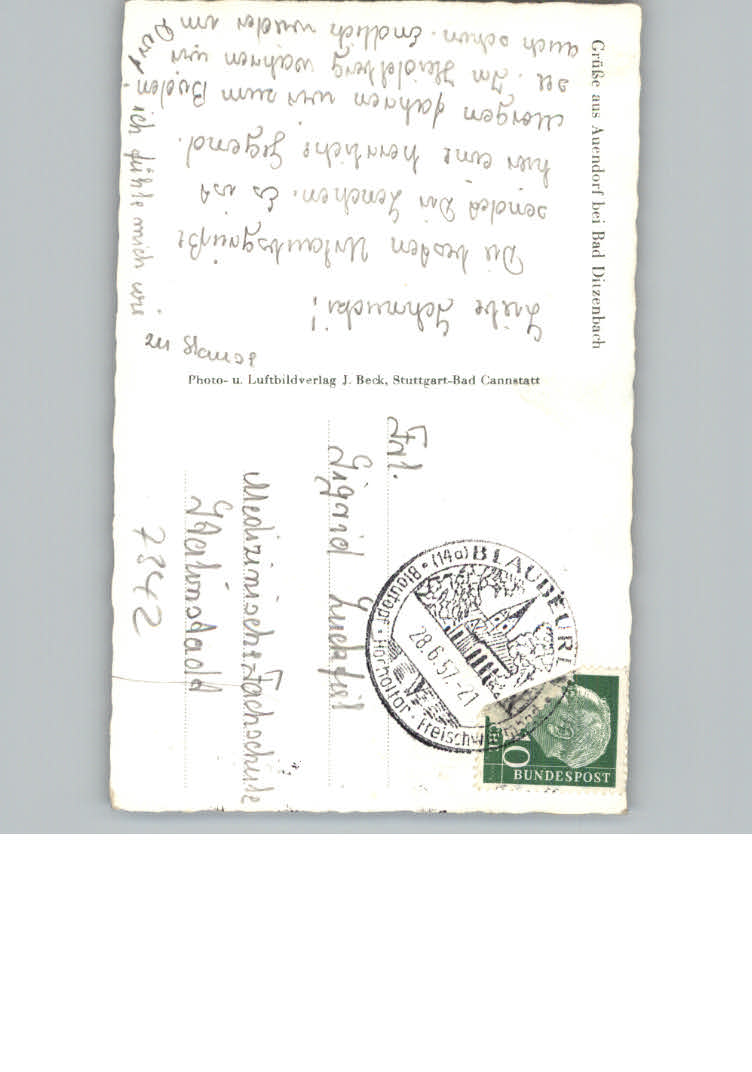 Grüße aus Auendorf bei Bad Ditzenbach
Liebe Schmucki!
Die besten Urlaubsgrüße
sendet Dir Lenchen. Es ist
hier eine herrliche Gegend.
Morgen fahren wir zum Boden
see. In Heidelberg wahren wir
auch schon. Endlich wieder um
ich fühle mich wie
Photo- u. Luftbildverlag J. Beck, Stuttgart-Bad Cannstatt
Frl.
Sigrid
Medizinische Fachschule
(14a) BLAUBEUREN
28.6.57.-21
Blautopf · Hochaltar · Freischw
0
BUNDESPOST